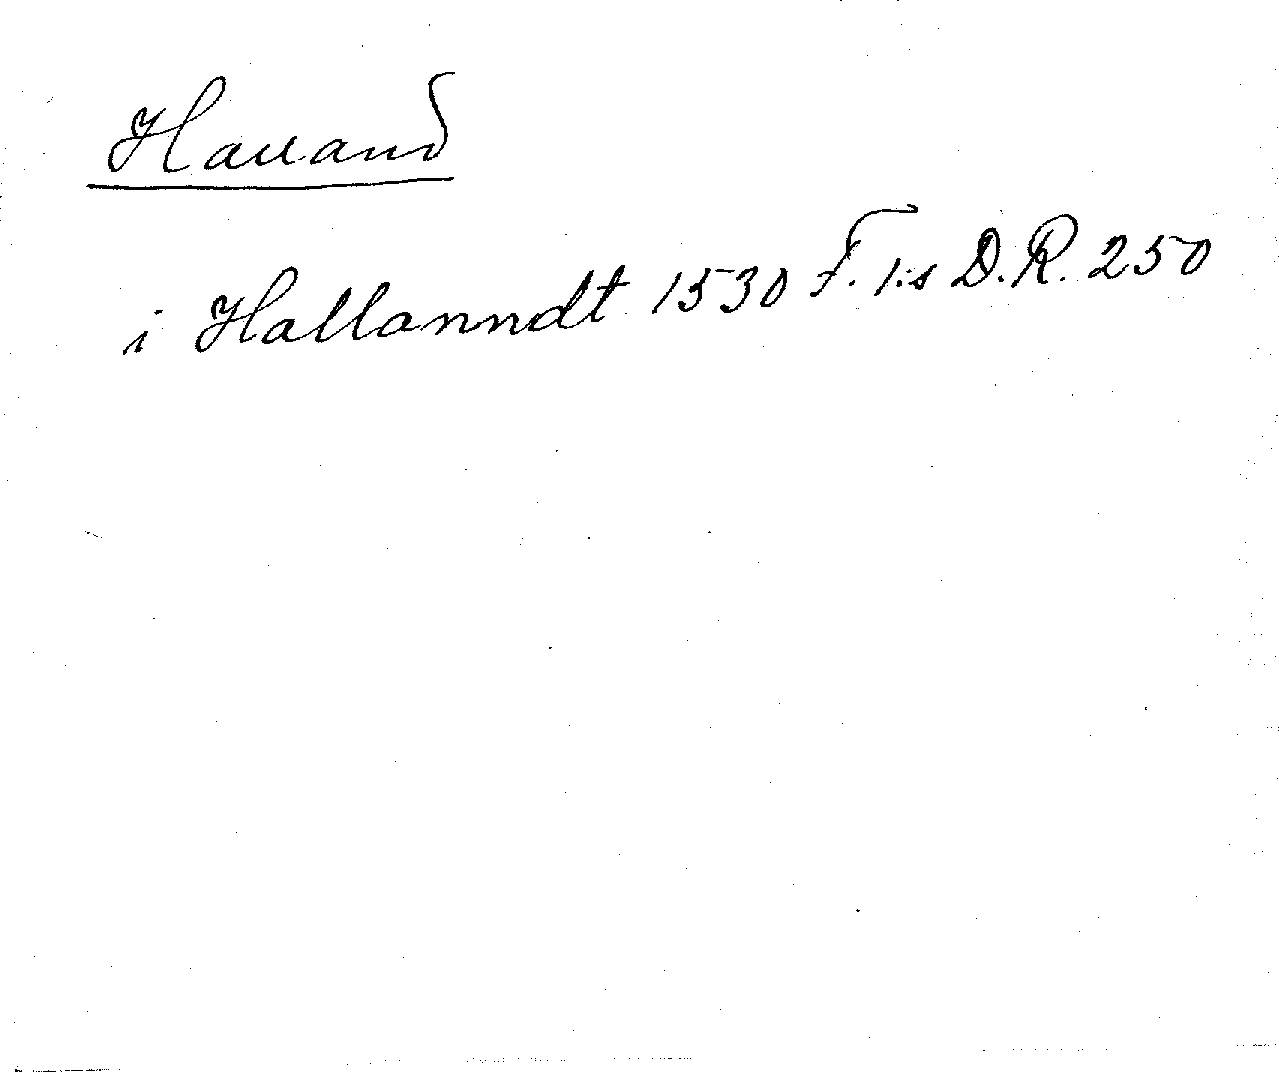 Halland
i Hallanndt 1530 F. I:s D.R. 250